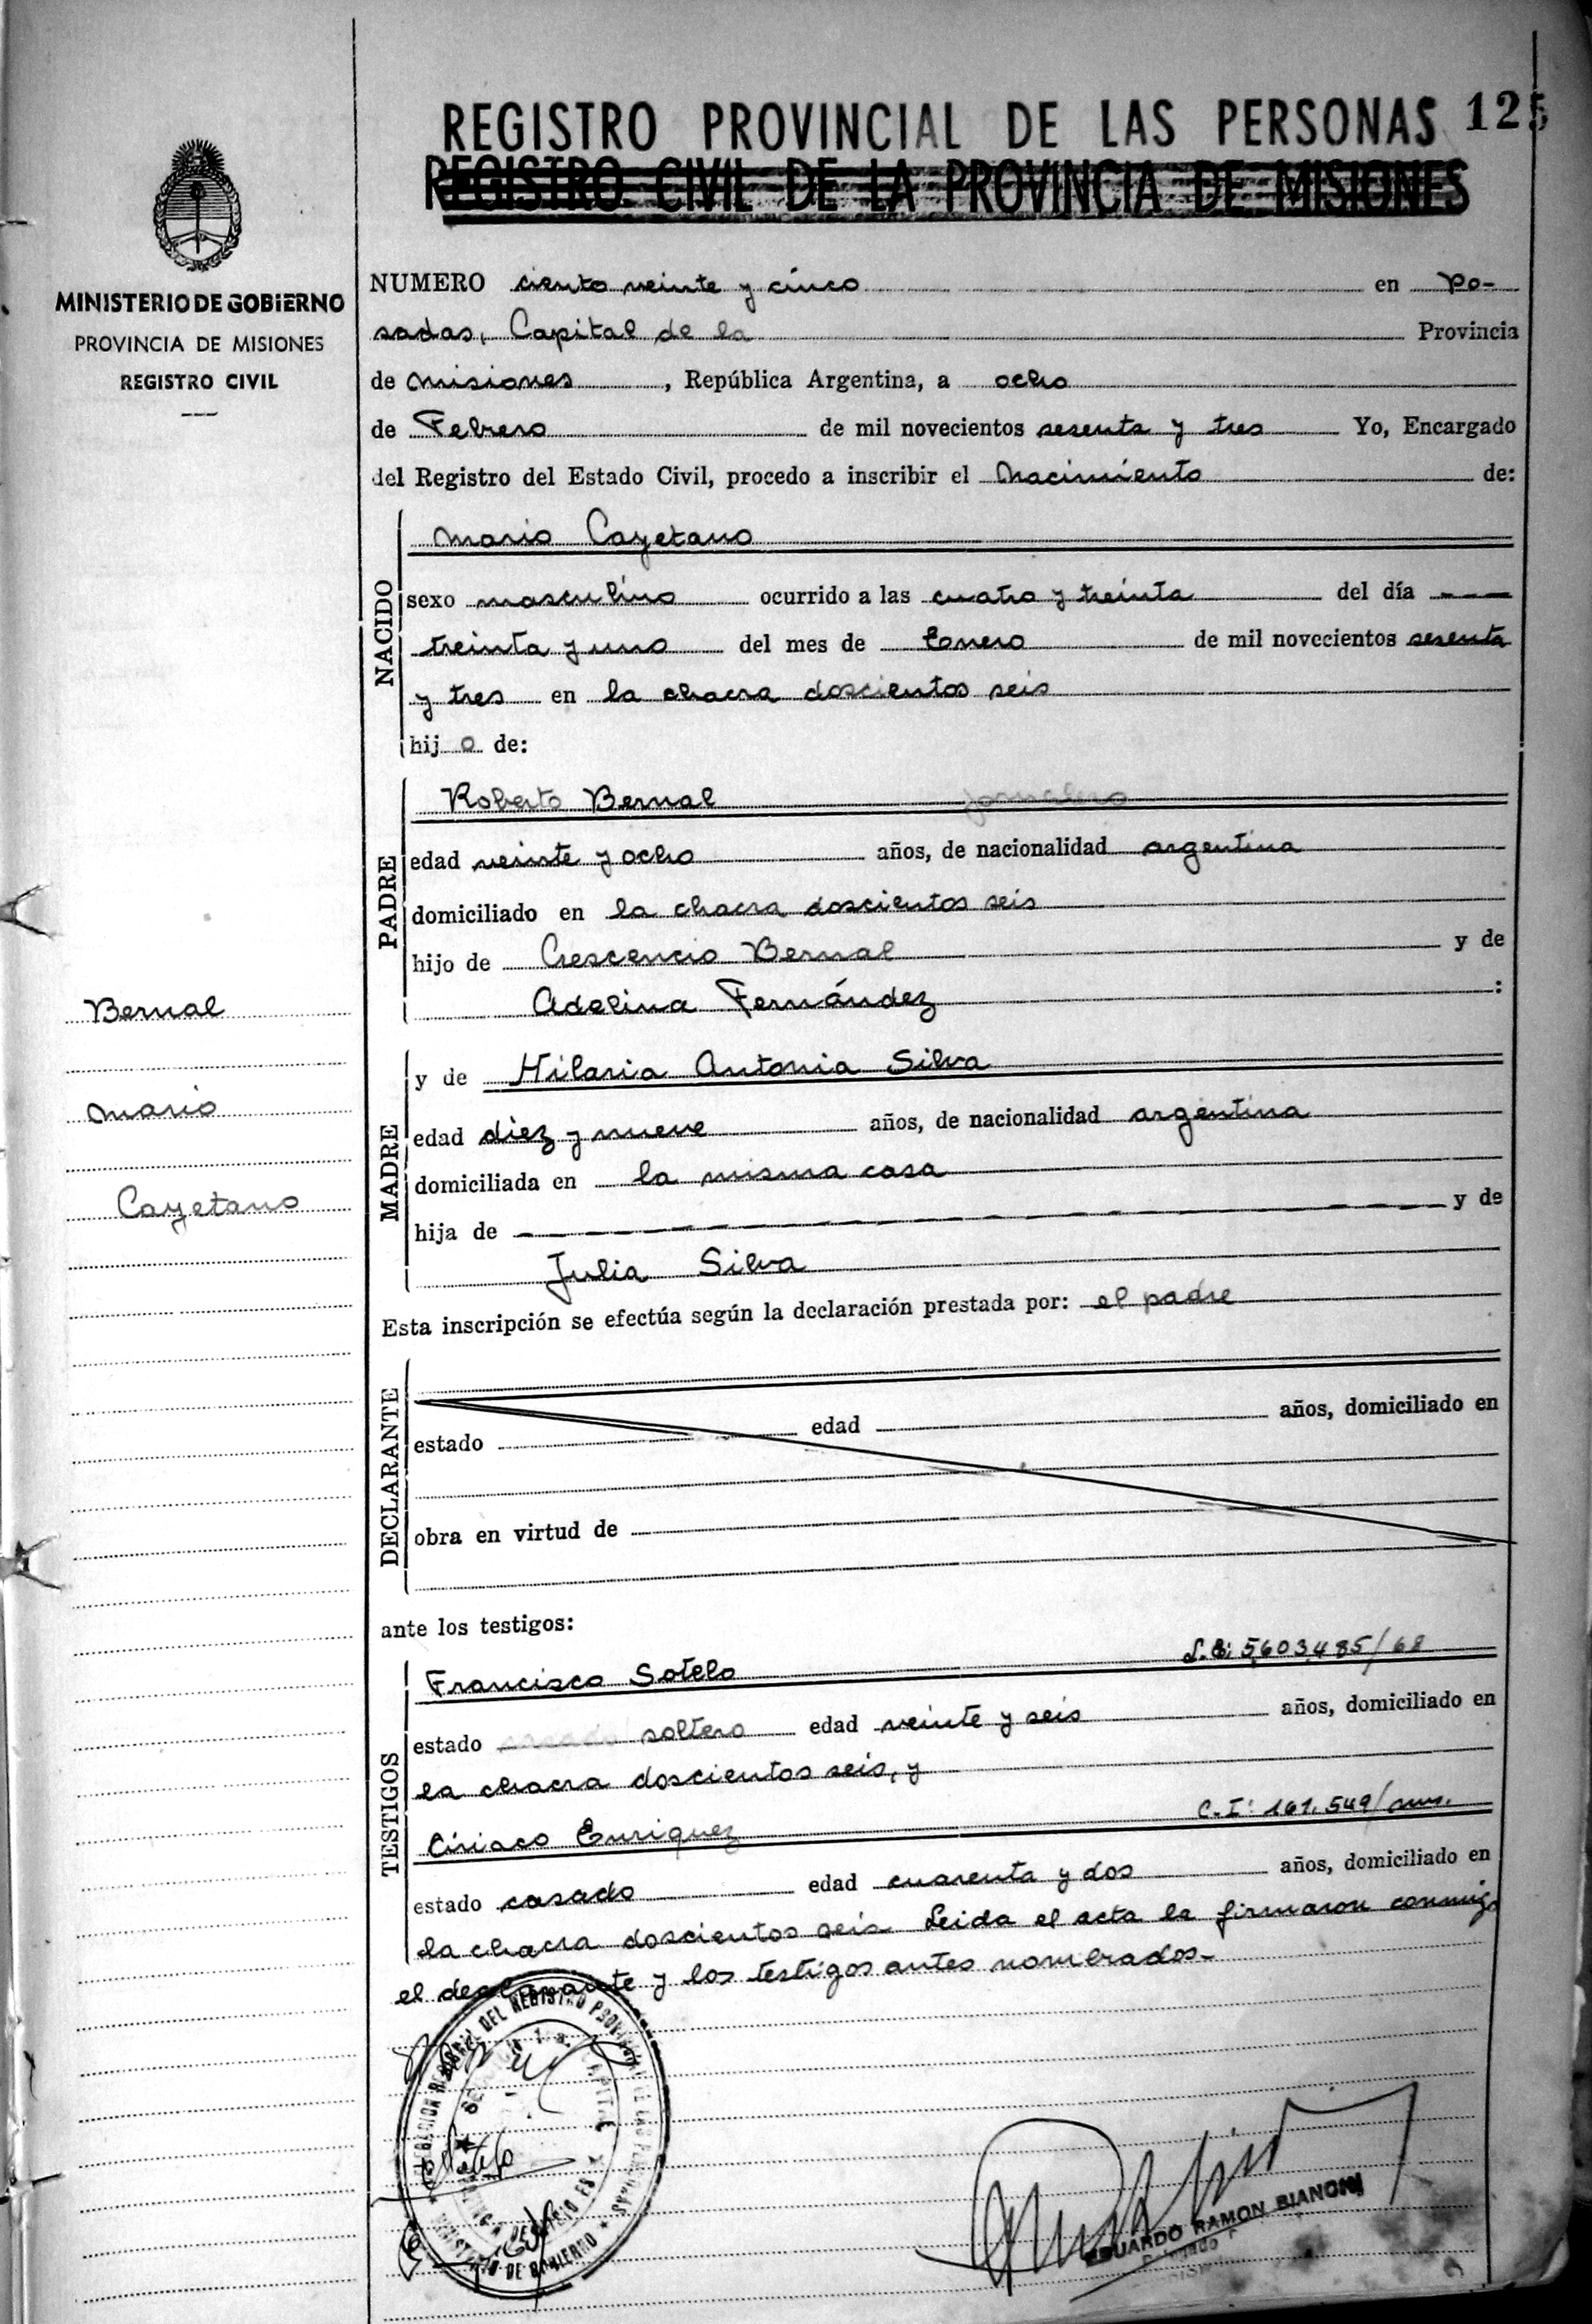 REGISTRO PROVINCIAL DE LAS PERSONAS 125
REGISTRO CIVIL DE LA PROVINCIA DE MISIONES
MINISTERIO DE GOBIERNO
PROVINCIA DE MISIONES
REGISTRO CIVIL
NUMERO ciento veinte y cinco en Po-
sadas, Capital de la Provincia
de Misiones, República Argentina, a ocho
de Febrero de mil novecientos sesenta y tres Yo, Encargado
del Registro del Estado Civil, procedo a inscribir el Nacimiento de:
NACIDO
Mario Cayetano
sexo masculino ocurrido a las cuatro y treinta del día
treinta y uno del mes de Enero de mil novecientos sesenta
y tres en la chacra doscientos seis
hijo de:
PADRE
Roberto Bernal jornalero
edad veinte y ocho años, de nacionalidad argentina
domiciliado en la chacra doscientos seis
hijo de Crescencio Bernal y de
Adelina Fernández :
Bernal
Mario
Cayetano
MADRE
y de Hilaria Antonia Silva
edad diez y nueve años, de nacionalidad argentina
domiciliada en la misma casa
hija de y de
Julia Silva
Esta inscripción se efectúa según la declaración prestada por: el padre
DECLARANTE
estado edad años, domiciliado en
obra en virtud de
ante los testigos:
TESTIGOS
Francisco Sotelo L.E: 5,603,485/68
estado soltero edad veinte y seis años, domiciliado en
la chacra doscientos seis, y
Ciriaco Enriquez C.I: 161.549/
estado casado edad cuarenta y dos años, domiciliado en
la chacra doscientos seis. Leida el acta la firmaron conmigo
el declarante y los testigos antes nombrados.-
MINISTERIO DE GOBIERNO
EDUARDO RAMON BIANCHI